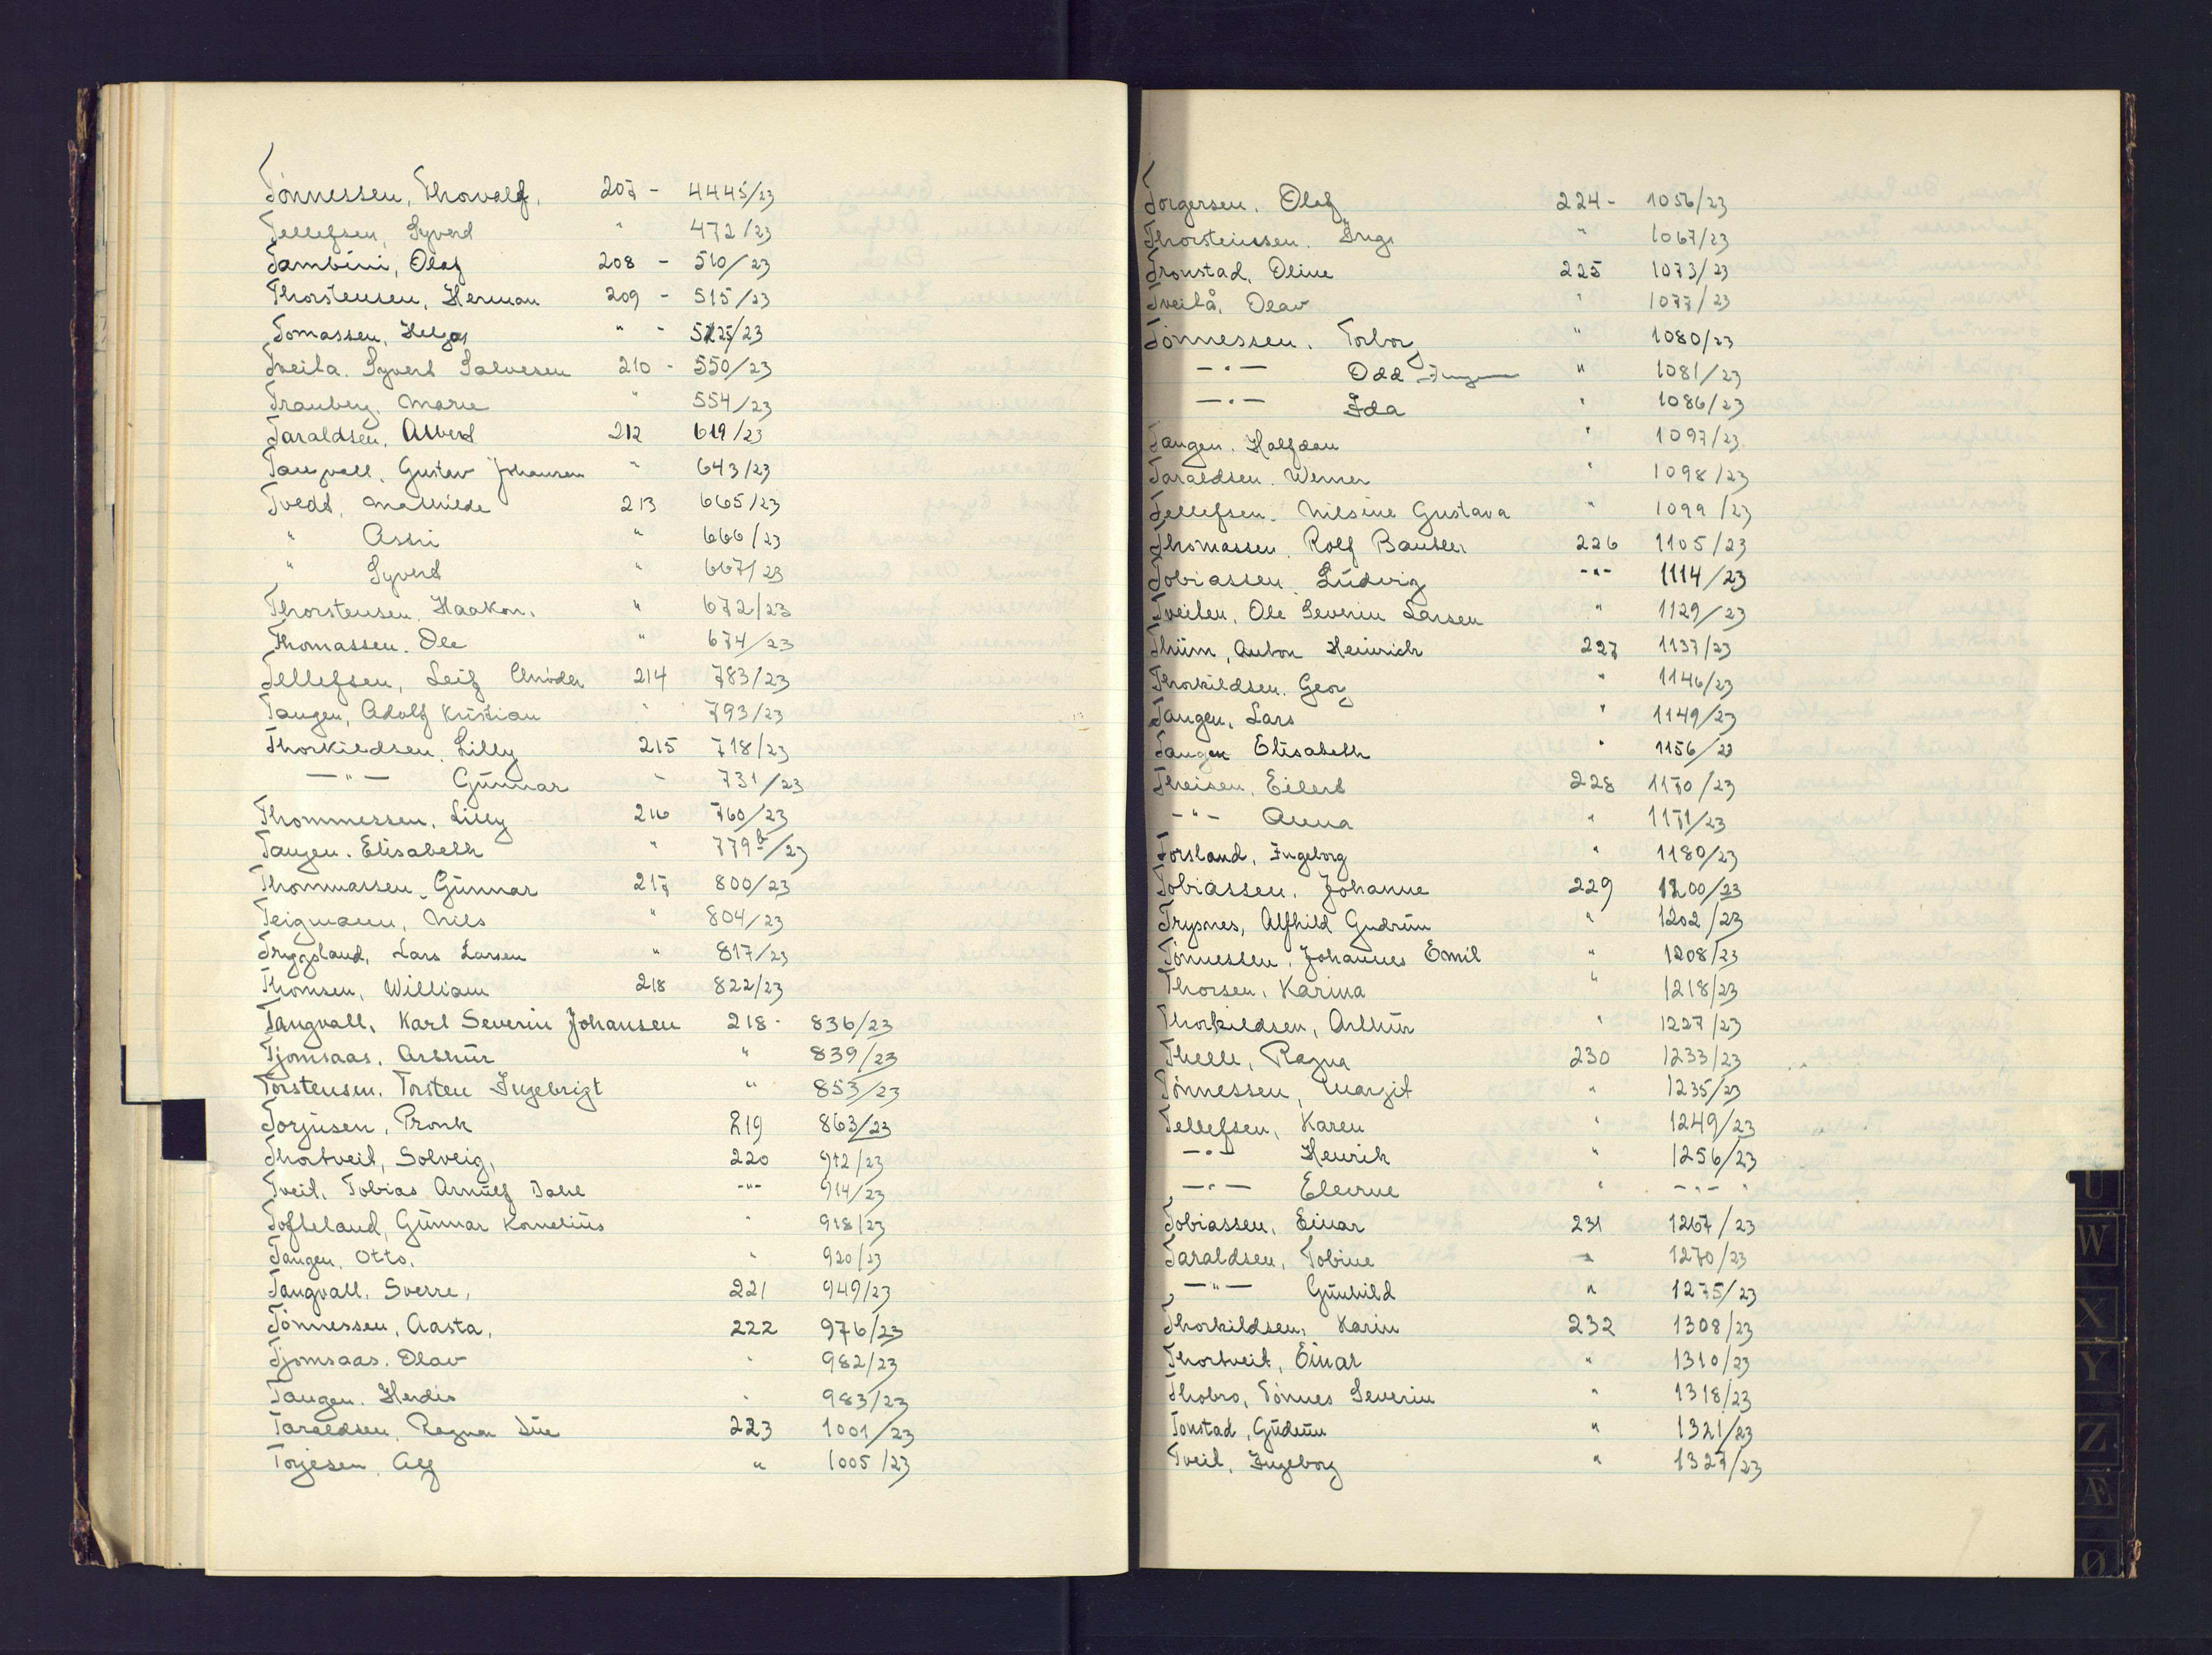 Tönnessen, Thorvalf, 207 - 4445/23
Tellefsen, Syverd " 472/23
Tambini, Olaf 208 - 510/23
Thorstensen, Herman 209 - 515/23
Tomassen, Helga " - 525/23
Tveita. Syvert Salvesen 210 - 550/23
Trauberg. Marie " 554/23
Taraldsen, Albert 212 619/23
Tangvall, Gustav Johansen " 643/23
Tvedt, Mathilde 213 665/23
" Assri " 666/23
" Syverd " 667/23
Thorstensen. Haakon. " 672/23
Thomassen. Ole " 674/23
Tellefsen, Leif 214 783/23
Tangen, Adolf Kristian " 793/23
Thorkildsen. Lilly 215 718/23
— " — Günnar " 731/23
Thommessen. Lilly 216 760/23
Tangen. Elisabeth " 779b/23
Thommassen, Günnar 217 800/23
Teigmann, Nils " 804/23
Tryggsland, Lars Larsen " 817/23
Thomsen, William 218 822/23
Tangvall, Karl Severin Johansen 218 - 836/23
Tjomsaas. Arthür " 839/23
Torstensen. Torsten Ingebrigt " 853/23
Torjüsen, Pronk 219 863/23
Thortveit, Solveig, 220 912/23
Tveit, Tobias Arnülf Dahl -"- 914/23
Tofteland, Günnar Kornelius " 918/23
Tangen. Otto. " 920/23
Tangvall. Sverre, 221 949/23
Tönnessen, Aasta, 222 976/23
Tjomsaas. Olav " 982/23
Tangen. Herdis " 983/23
Taraldsen. Ragna Due 223 1001/23
Torjesen. Alf " 1005/23
Torgersen. Olaf 224 - 1056/23
Thorsteinsen. Inga " 1067/23
Tronstad, Oline 225 1073/23
Tveitå, Olav " 1077/23
Tönnessen. Torborg " 1080/23
— " — Odd " 1081/23
— " — Ida " 1086/23
Tangen. Halfdan " 1097/23
Taraldsen. Werner " 1098/23
Tellefsen. Nilsine Gustava " 1099/23
Thomassen. Rolf Bantler 226 1105/23
Tobiassen. Lüdvig -"- 1114/23
Tveiten, Ole Severin Larsen " 1129/23
Thüm, Anton Heinrich 227 1137/23
Thorkildsen. Georg " 1146/23
Tangen, Lars " 1149/23
Tangen Elisabeth " 1156/23
Theisen, Eilert 228 1170/23
— " — Anna " 1171/23
Torsland, Ingeborg " 1180/23
Tobiassen. Johanne 229 1200/23
Trysnes, Alfhild Gudrün " 1202/23
Tönnessen, Johannes Emil " 1208/23
Thorsen, Karina " 1218/23
Thorkildsen, Arthür " 1227/23
Thelle, Ragna 230 1233/23
Tönnessen, Margit " 1235/23
Tellefsen, Karen " 1249/23
— " — Henrik " 1256/23
— " — Elevine " — " — "
Tobiassen, Einar 231 1267/23
Taraldsen, Tobine " 1270/23
— " — Günhild " 1275/23
Thorkildsen, Karin 232 1308/23
Thortveit, Einar " 1310/23
Thobro, Tönnes Severin " 1318/23
Tonstad, Güdrün " 1321/23
Tveit, Ingeborg " 1327/23
U
W
X
Y
Z
Æ
Ø